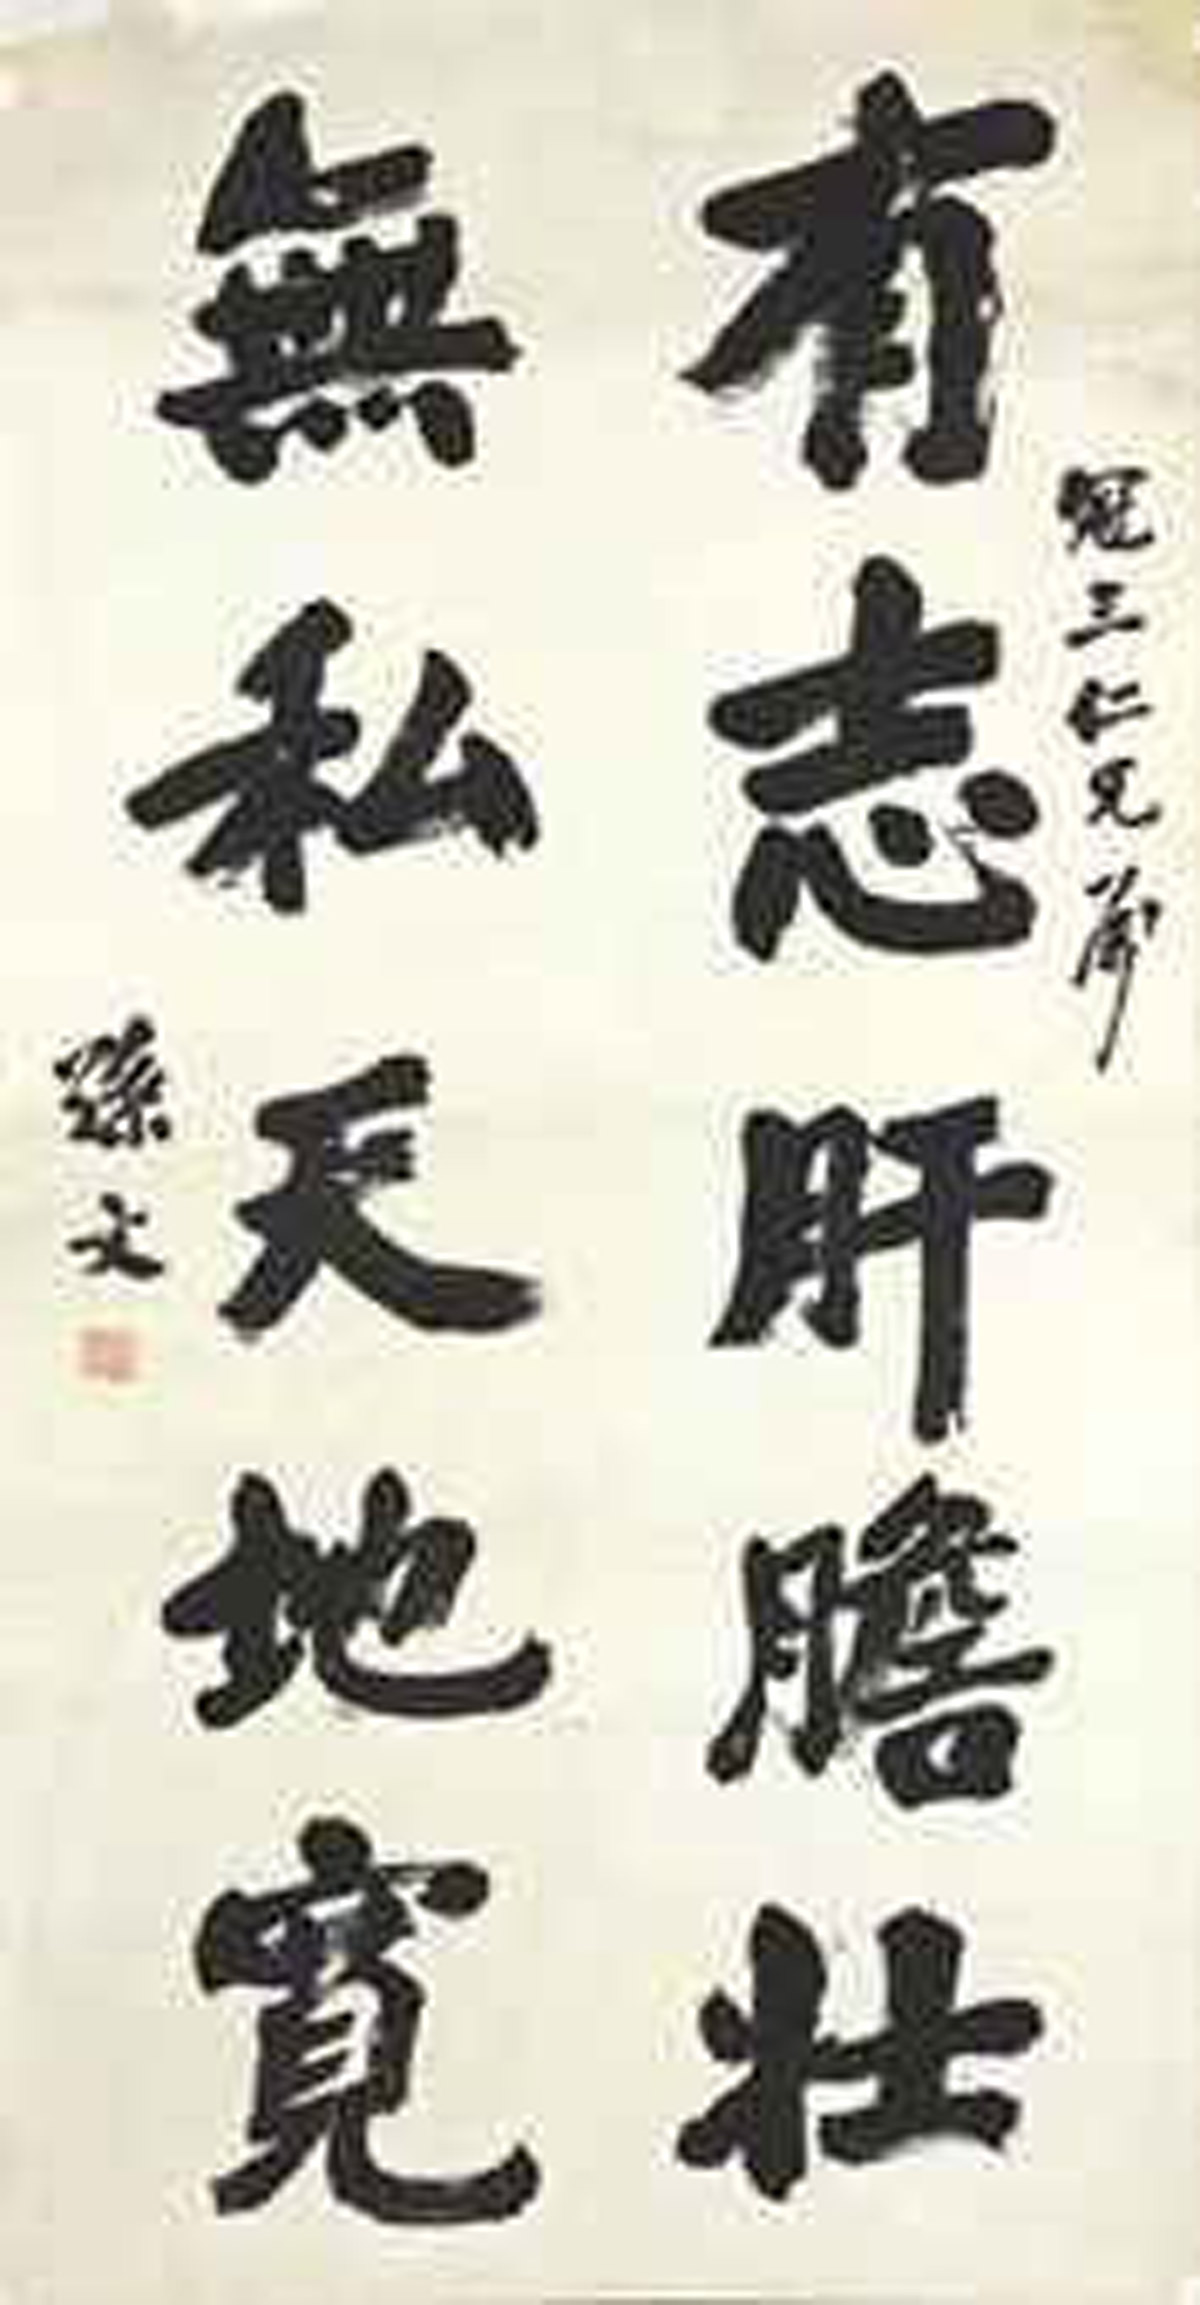 冠三仁兄 屬
有志肝膽壯
無私天地寬
孫文